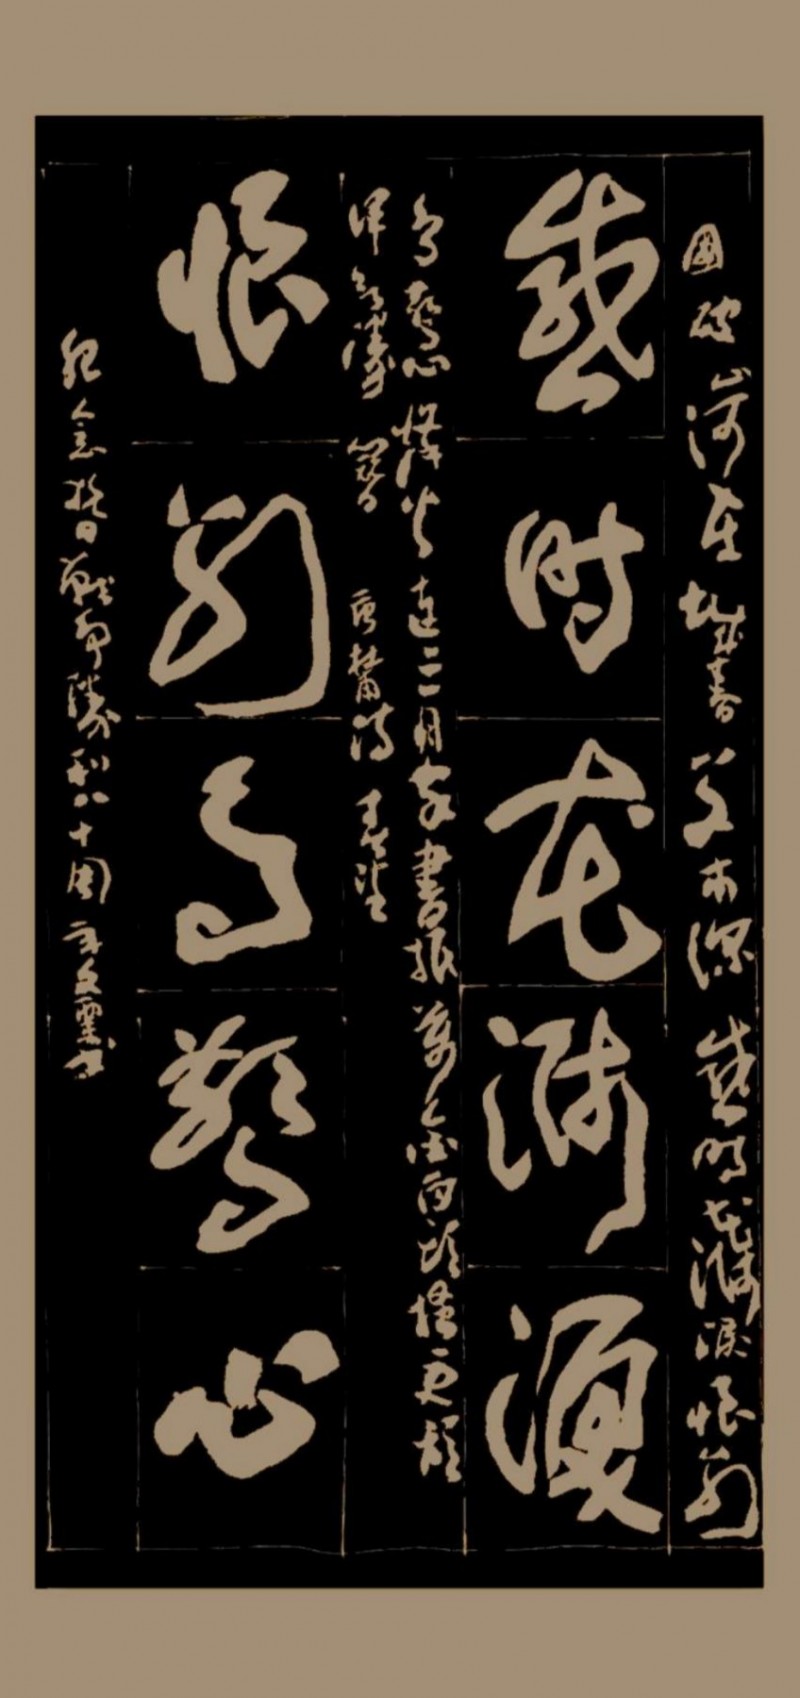 国破山河在城春草木深感时花溅泪恨别
感时花溅泪
鸟惊心烽火连三月家书抵万金白头搔更短
浑欲胜簪 唐杜甫诗春望
恨别鸟惊心
纪念抗日战争胜利八十周年文